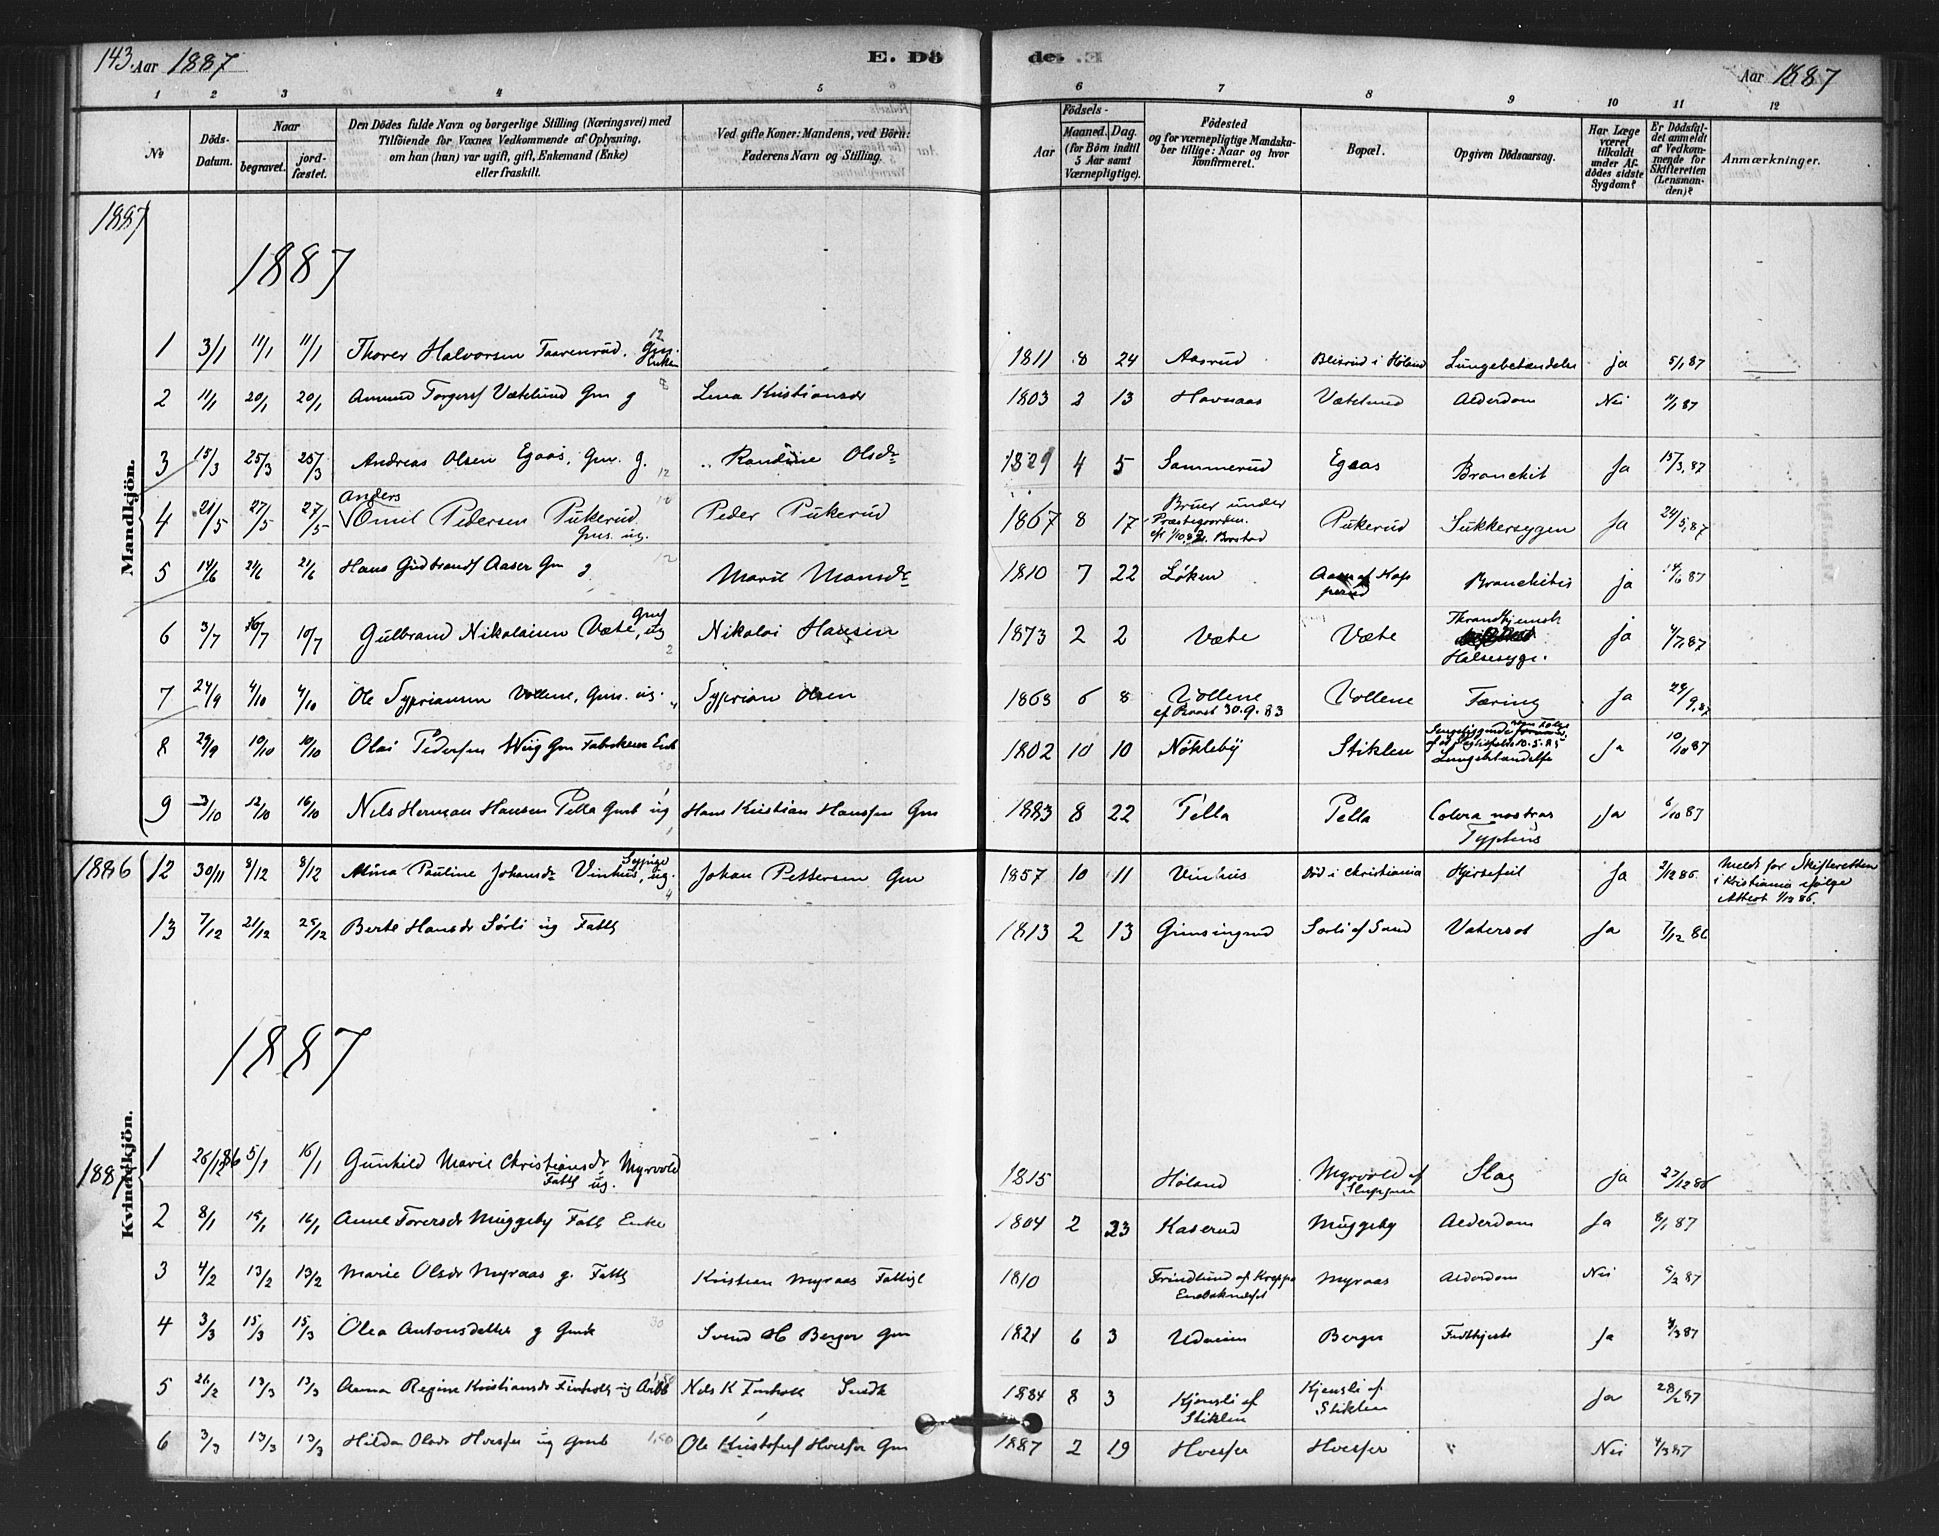 143. Aar 1887 E. Dö de: Aar 1887
1 2 3 4 5 6 7 8 9 10 11 12
No
Döds-Datum.
Naar
begravet. jord-fæstet.
Den Dödes fulde Navn og borgerlige Stilling (Næringsvei) med
Tilföiende for Voxnes Vedkommende af Oplysning,
om han (hun) var ugift, gift, Enkemand (Enke)
eller fraskilt.
Ved gifte Koner: Mandens, ved Börn:
Faderens Navn og Stilling.
Aar
Födsels-
Maaned. Dag.
(for Börn indtil
5 Aar samt
Værnepligtige).
Födested
og for værnepligtige Mandska-
ber tillige: Naar og hvor
konfirmeret.
Bopæl.
Opgiven Dödsaarsag.
Har Læge
været
tilkaldt
under Af-
dödes sidste
Sygdom?
Er Dödsfal-
det anmeldt
af Vedkom-
mende for
Skifteretten
(Lensman-
den)?
Anmærkninger.
1887
1887
Mandkjön.
1 3/1 11/1 11/1 Thorer Halvorsen Taarenrud. Gm. Enkem 1811 8 24 Aasrud Bleisrud i Höland Lungebetændelse ja 5/1 87
2 11/1 20/1 20/1 Amund Torgersf Vætelund Gm g Lena Kristiansdr 1803 2 13 Havnaas Vætelund Alderdom Nei 11/1 87
3 15/3 25/3 25/3 Andreas Olsen Egaas, Gm. g. 12 Randine Olsdr 1829 4 5 Sammerud Egaas Bronchit Ja 15/3 87
4 21/5 27/5 27/5 Anders Emil Pedersen Pukerud Gms. ug. Peder Pukerud 1867 8 17 Bruer under Præstegaarden. Pukerud Sukkersygen Ja 24/5 87
5 14/6 21/6 21/6 Hans Gudbrandsf Aaser Gm g 12 Marie Monsdr 1810 7 22 Löken Bronchitis ja 14/6 87
6 3/7 10/7 10/7 Gulbrand Nikolaisen Væte, Gms ug 2 Nikolai Hansen 1873 2 2 Væte Væte Halsesyge. ja 4/7 87
7 24/9 4/10 4/10 Ole Sypriansen Vollene, Gms. ug. Syprian Olsen 1868 6 8 Vollene 30.9.83 Vollene Tæring Ja 28/9 87
8 29/9 10/10 10/10 Olai Pedersen Wiig Gm 1802 10 10 Nökleby Stiklen Lungebetændelse Ja 10/10 87
9 3/10 12/10 16/10 Nils Herman Hansen Pella Gmb ug Hans Kristian Hanssen Gm 1883 8 22 Pella Pella Colera nostras Typhus Ja 6/10 87
1886 12 30/11 8/12 8/12 Alina Pauline Johansdr Vinhus, Sypige ug. 4 Johan Pettersen Gm 1857 10 11 Vinhus Död i Christiania Hjertefeil Ja 2/12 86. Meldt for Skifteretten
i Kristiania ifölge
Attest 1/12 86.
13 7/12 21/12 25/12 Berte Hansdr Sörli ug Fattg 1813 2 13 Grinsingrud Sörli af Sand Vatersot Ja 7/12 86
1887
Kvindekjön.
1887 1 26/12 86 5/1 16/1 Gunhild Marie Christiansdr Myrvold Fattg ug. 1815 Höland Myrvold af Slag ja 27/12 86
2 8/1 15/1 16/1 Anne Toversdr Muggeby Fattg Enke 1804 2 23 Kaserud Muggeby Alderdom Ja 8/1 87
3 4/2 13/2 13/2 Marie Olsdr Myraas g. Fattg Kristian Myraas Fattigl 1810 Myraas Alderdom Nei 5/2 87
4 3/3 15/3 15/3 Olea Antonsdatter g Gmk 30 Svend H Berger Gm 1821 6 3 Udneim Berger Fedthjerte Ja 3/3 87
5 26/2 13/3 13/3 Anna Regine Kristiansdr Finholt ug Nils K Finholt 1884 8 3 Kjensli af Stiklen Kjensli af Stiklen Ja 28/2 87
6 3/3 13/3 13/3 Hilda Olsdr ug Gmb 1,50 Ole Kristofersf Gm 1887 2 19 Nei 4/3 87